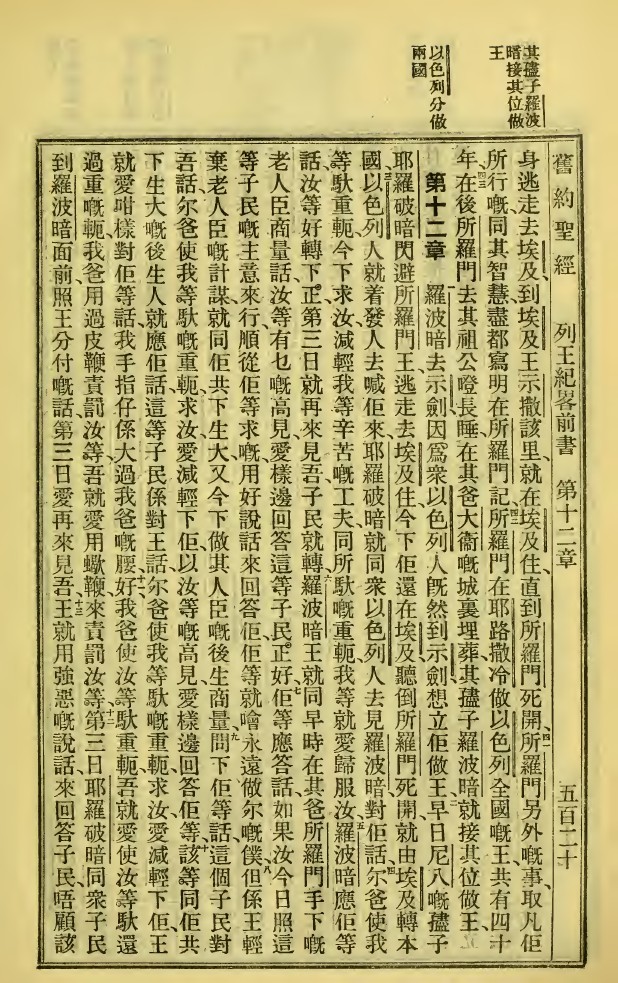 其孻子羅波
暗接其位做
王
以色列分做
兩國
舊約聖經 列王紀畧前書 第十二章 五百二十
身逃走去埃及、到埃及王示撒該里、就在埃及住、直到所羅門死開、四一所羅門另外嘅事、取凡佢
所行嘅、同其智慧、盡都寫明在所羅門記、四二所羅門在耶路撒冷做以色列全國嘅王、共有四十
年、四三在後所羅門去其祖公嶝長睡、在其爸大衞嘅城裏埋葬、其孻子羅波暗就接其位做王、
第十二章 一羅波暗去示劍、因爲衆以色列人旣然到示劍、想立佢做王、二早日尼八嘅孻子
耶羅破暗閃避所羅門王、逃走去埃及住、今下佢還在埃及、聽倒所羅門死開、就由埃及轉本
國、三以色列人就着發人去喊佢來、耶羅破暗就同衆以色列人去見羅波暗、對佢話、四尔爸使我
等馱重軛、今下求汝減輕我等辛苦嘅工夫、同所馱嘅重軛、我等就愛歸服汝、五羅波暗應佢等
話、汝等好轉下、正第三日就再來見吾、子民就轉、六羅波暗王就同早時在其爸所羅門手下嘅
老人臣商量話、汝等有乜嘅高見、愛樣邊回答這等子民正好、七佢等應答話、如果汝今日照這
等子民嘅主意來行、順從佢等求嘅、用好說話來回答佢、佢等就噲永遠做尔嘅僕、八但係王輕
棄老人臣嘅計謀、就同佢共下生大又今下做其人臣嘅後生商量、九問下佢等話、這個子民對
吾話、尔爸使我等馱嘅重軛、求汝愛減輕下佢、以汝等嘅高見、愛樣邊回答佢等、十該等同佢共
下生大嘅後生人就應佢話、這等子民係對王話、尔爸使我等馱嘅重軛、求汝愛減輕下佢、王
就愛咁樣對佢等話、我手指仔係大過我爸嘅腰、十一好我爸使汝等馱重軛、吾就愛使汝等馱還
過重嘅軛、我爸用過皮鞭責罰汝等、吾就愛用蠍鞭來責罰汝等、十二第三日、耶羅破暗同衆子民
到羅波暗面前、照王分付嘅話、第三日愛再來見吾、十三王就用強惡嘅說話來回答子民、唔顧該